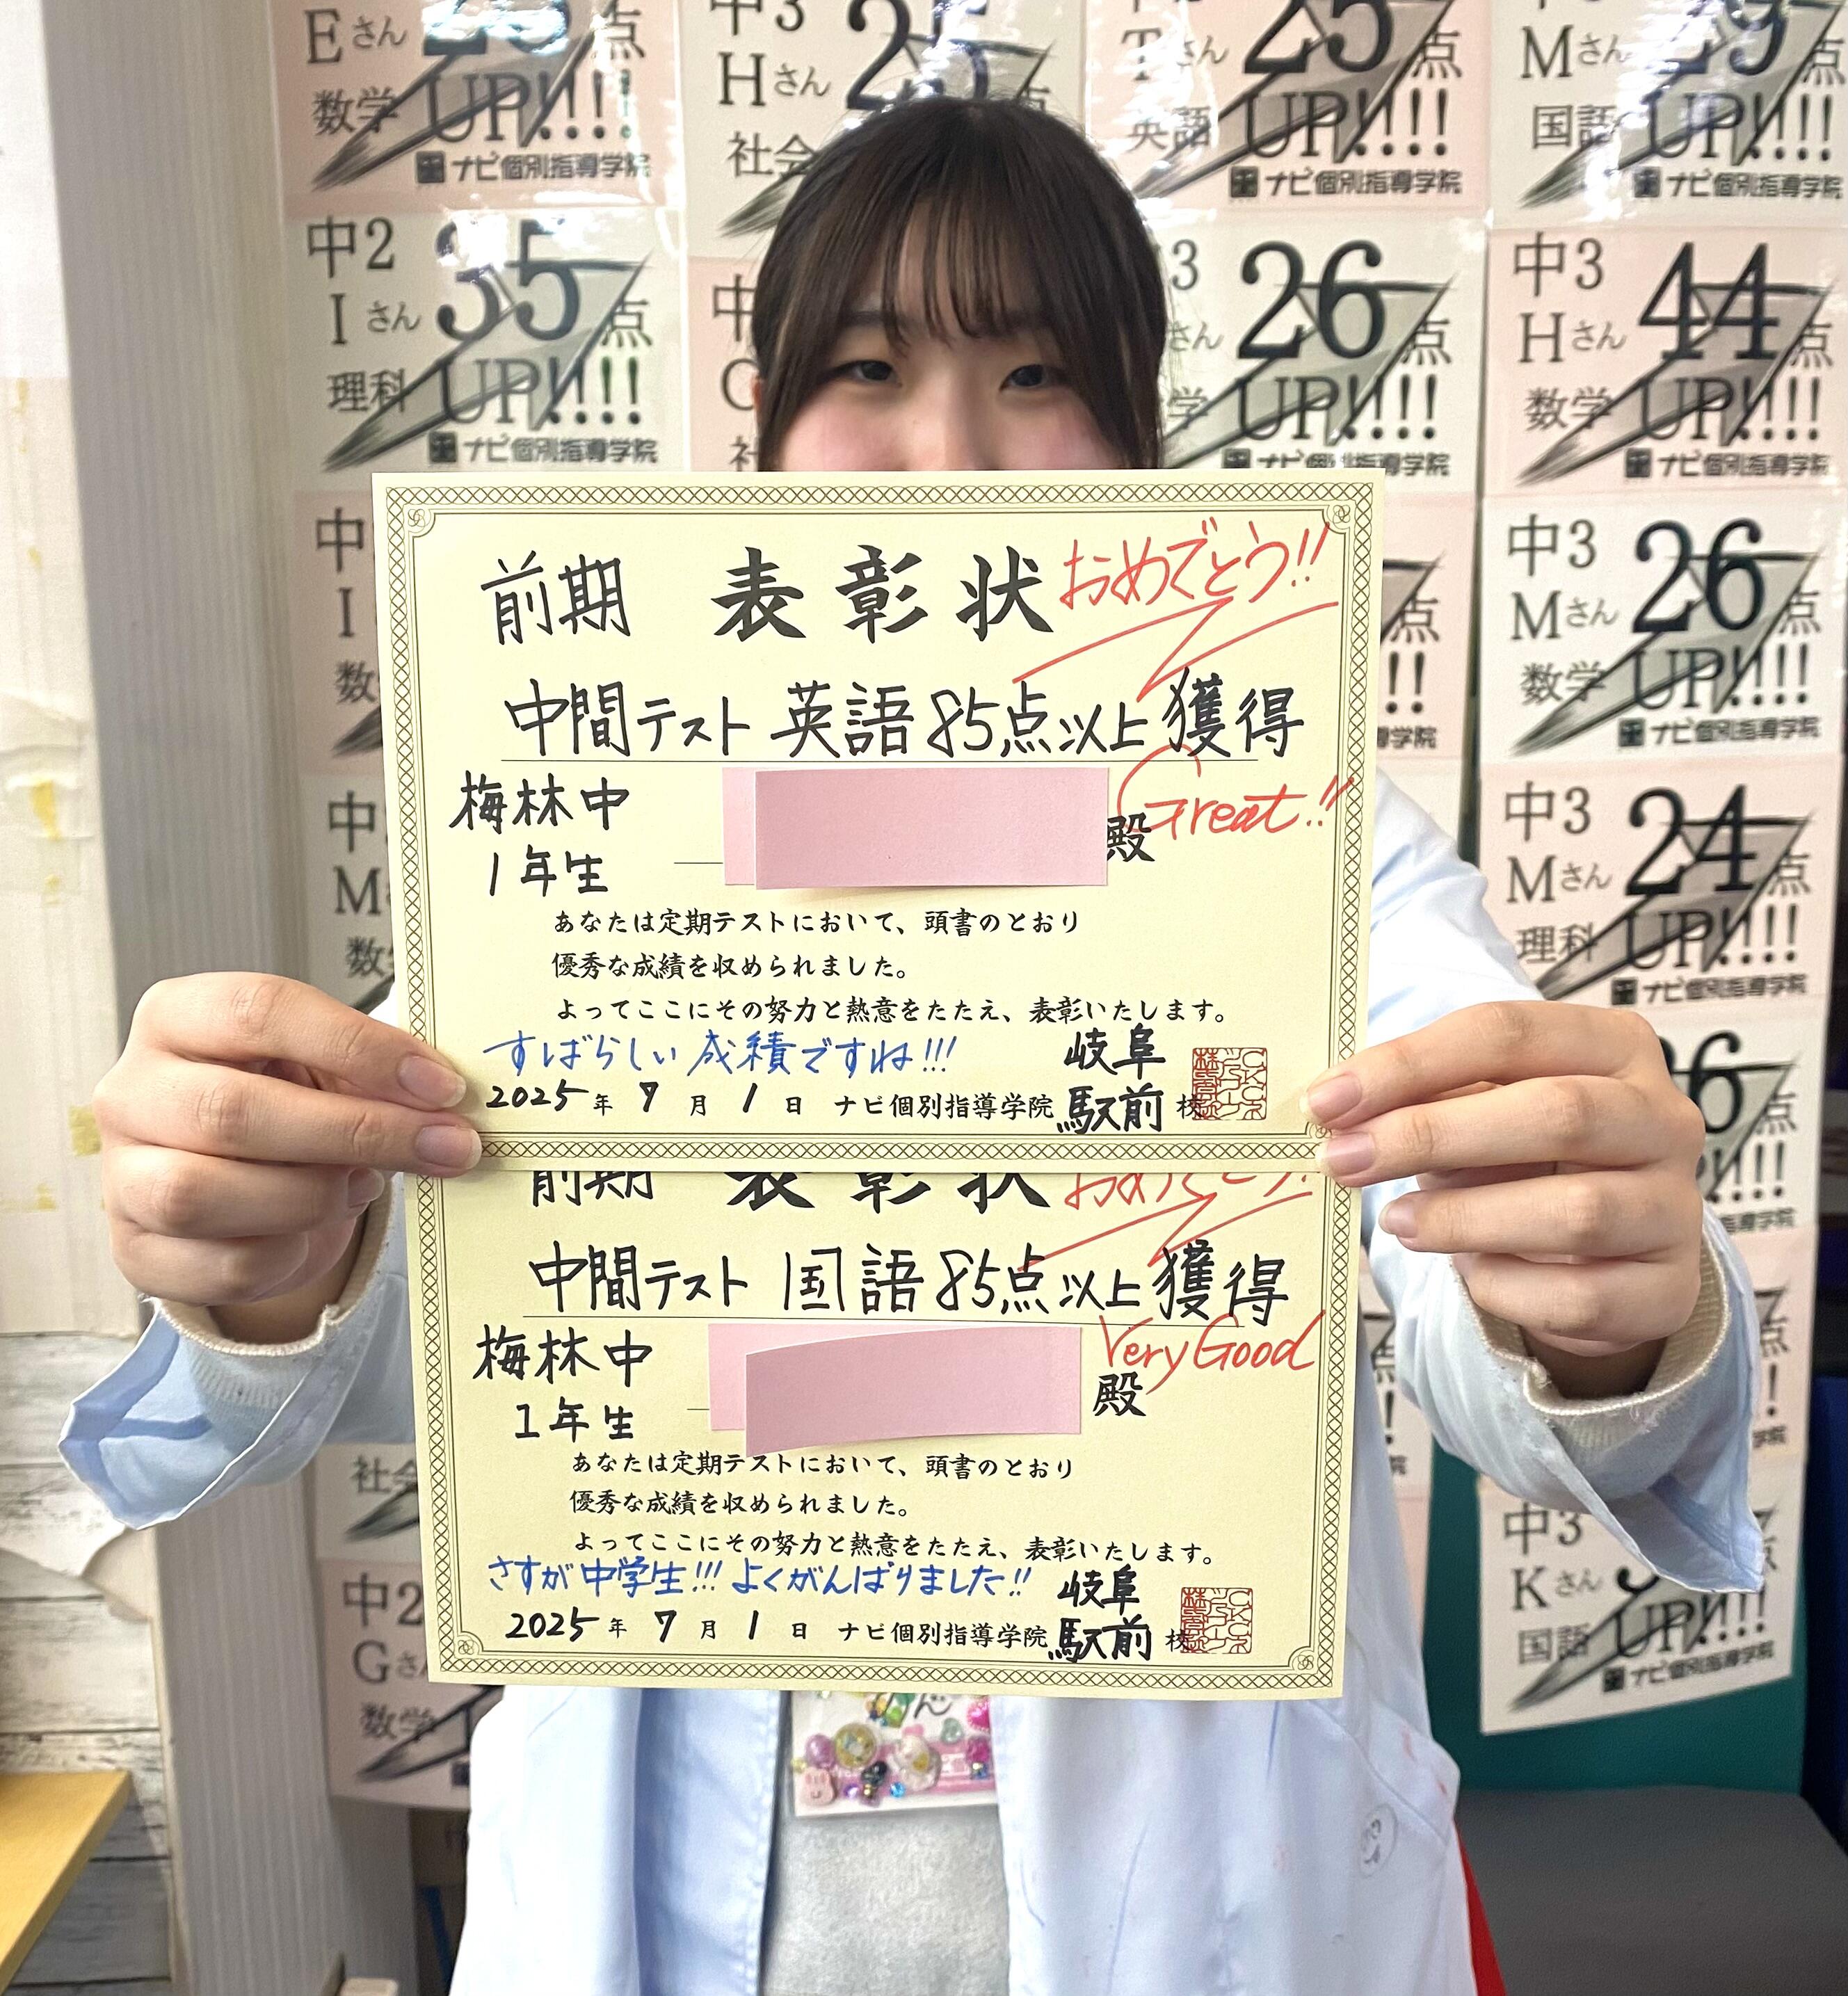 Eさん
数学
点
UP!!!!
ナビ個別指導学院
中3
Hさん
25
点
社会
Tさん
25
点
英語
UP!!!!
ナビ個別指導学院
Mさん
29
点
国語
UP!!!!
ナビ個別指導学院
中2
Iさん
35
点
理科
UP!!!!
ナビ個別指導学院
26
点
UP!!!!
ナビ個別指導学院
中3
Hさん
44
点
数学
UP!!!!
ナビ個別指導学院
中3
Mさん
26
点
数学
UP!!!!
ナビ個別指導学院
中3
Mさん
24
点
理科
UP!!!!
ナビ個別指導学院
前期 表彰状 おめでとう!!
中間テスト 英語85点以上獲得
梅林中
1年生
殿
Great!!
あなたは定期テストにおいて、頭書のとおり
優秀な成績を収められました。
よってここにその努力と熱意をたたえ、表彰いたします。
すばらしい成績ですね!!!
2025年 7月 1日 ナビ個別指導学院 岐阜駅前校
前期 表彰状 おめでとう!!
中間テスト 国語85点以上獲得
梅林中
1年生
殿
Very Good
あなたは定期テストにおいて、頭書のとおり
優秀な成績を収められました。
よってここにその努力と熱意をたたえ、表彰いたします。
さすが中学生!!! よくがんばりました!!
2025年 7月 1日 ナビ個別指導学院 岐阜駅前校
中2
Gさん
数学
中3
Kさん
点
国語
UP!!!!
ナビ個別指導学院